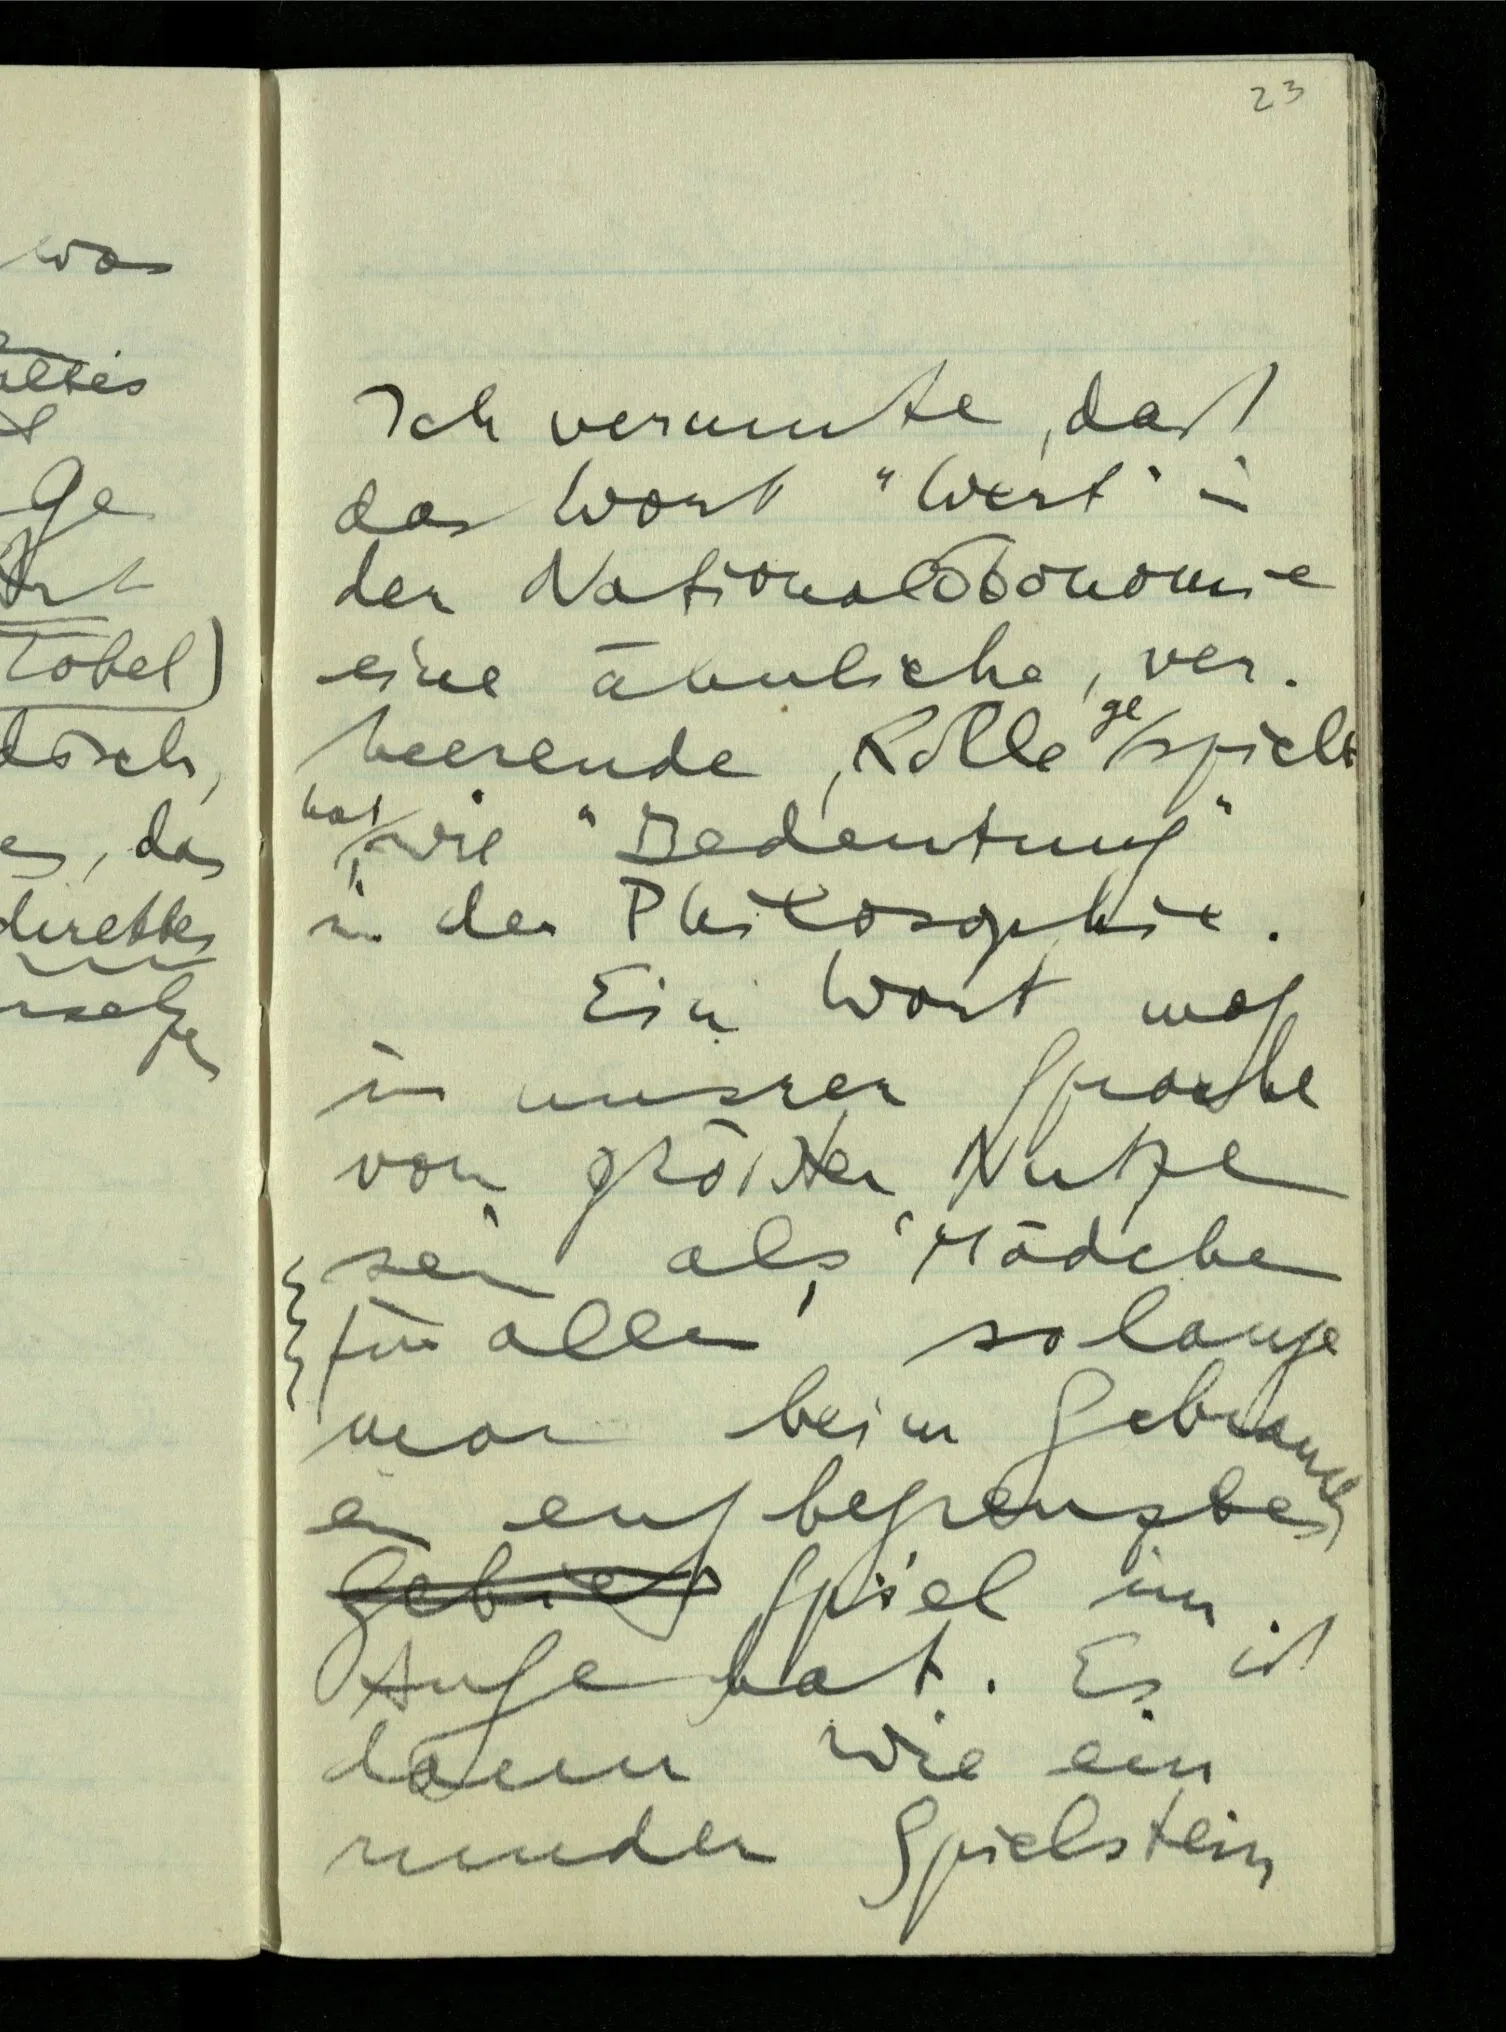 23
was
Ge
Tobel)
disch,
es, das
direktes
Ich vermute, daß
das Wort "Wert" in
der Nationalökonomie
eine ähnliche, ver-
heerende, Rolle gespielt
hat, wie "Bedeutung"
in der Philosophie.
Ein Wort mag
in unsrer Sprache
von größtem Nutzen
sein als 'Mädchen
für alles' solange
man beim Gebrauch
ein eng begrenztes
Gebiet Spiel im
Auge hat. Es ist
dann wie ein
runder Spielstein